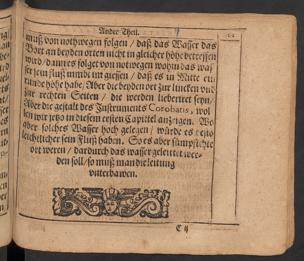 Ander Theil.
muß von nothwegen folgen / daß das Wasser das
Bort an beyden orten nicht in gleicher höhe betreffen
wird / dann es folget von notwegen wohin das was
ser sein fluß
runde höhe habe / Aber die beyden ort zur lincken vnd
zur rechten Seiten / die werden
Aber die gestalt des Instruments Corobatis, wol
len wir jetzo in diesem ersten Capittel anzeigen. Wo
aber solches Wasser hoch gelegen / würde es desto
leichtlicher sein Fluß haben. So es aber sümpfichte
ort weren / dardurch das wasser geleittet wer-
den soll / so muß man die leitung
vnterbawen.
C ij